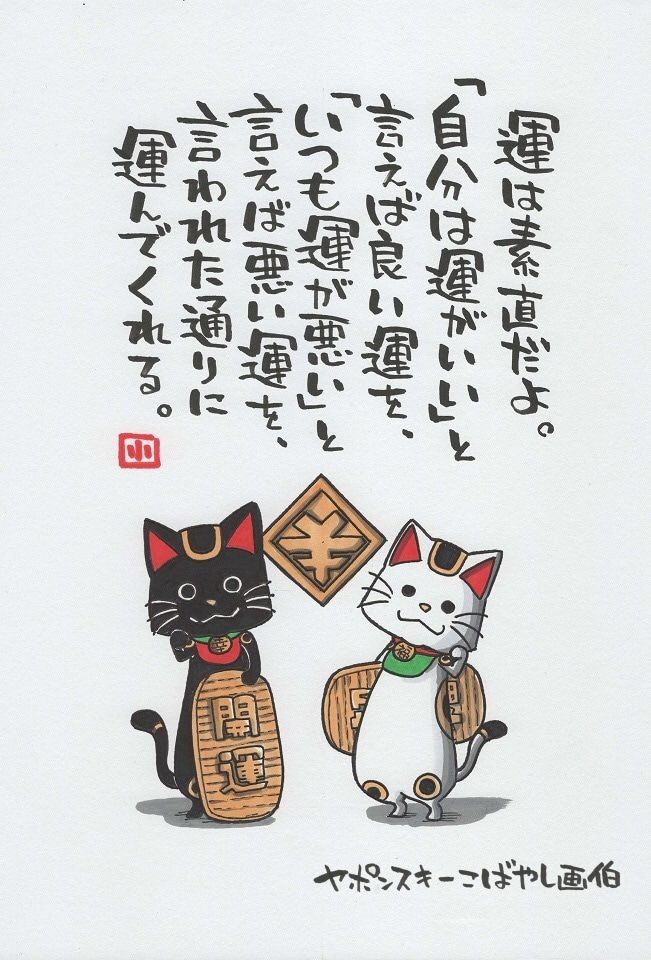 運は素直だよ。
「自分は運がいい」と
言えば良い運を、
「いつも運が悪い」と
言えば悪い運を、
言われた通りに
運んでくれる。
小
開運
ヤポンスキーこばやし画伯